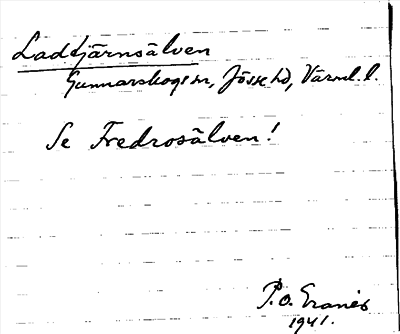 Ladtjärnsälven
Gunnarskogs sn, Jösse hd, Värml. l.
Se Fredrosälven!
P. O.
1941.